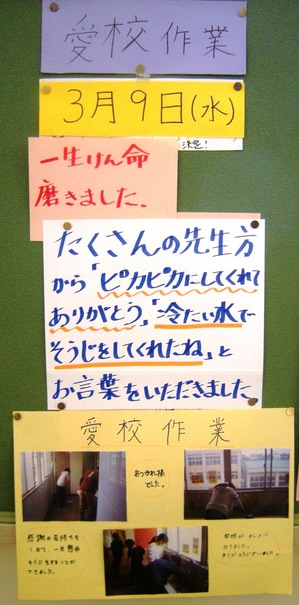 愛校作業
3月9日(水)
決定!
一生けん命
磨きました。
たくさんの先生方
から「ピカピカにしてくれて
ありがとう」「冷たい水で
そうじをしてくれたね」と
お言葉をいただきました
愛校作業
おつかれ様
でした。
感謝の気持ちを
こめて、一生懸命
そうじをすることが
できました。
学校がキレイに
なりました。
ありがとうございました。